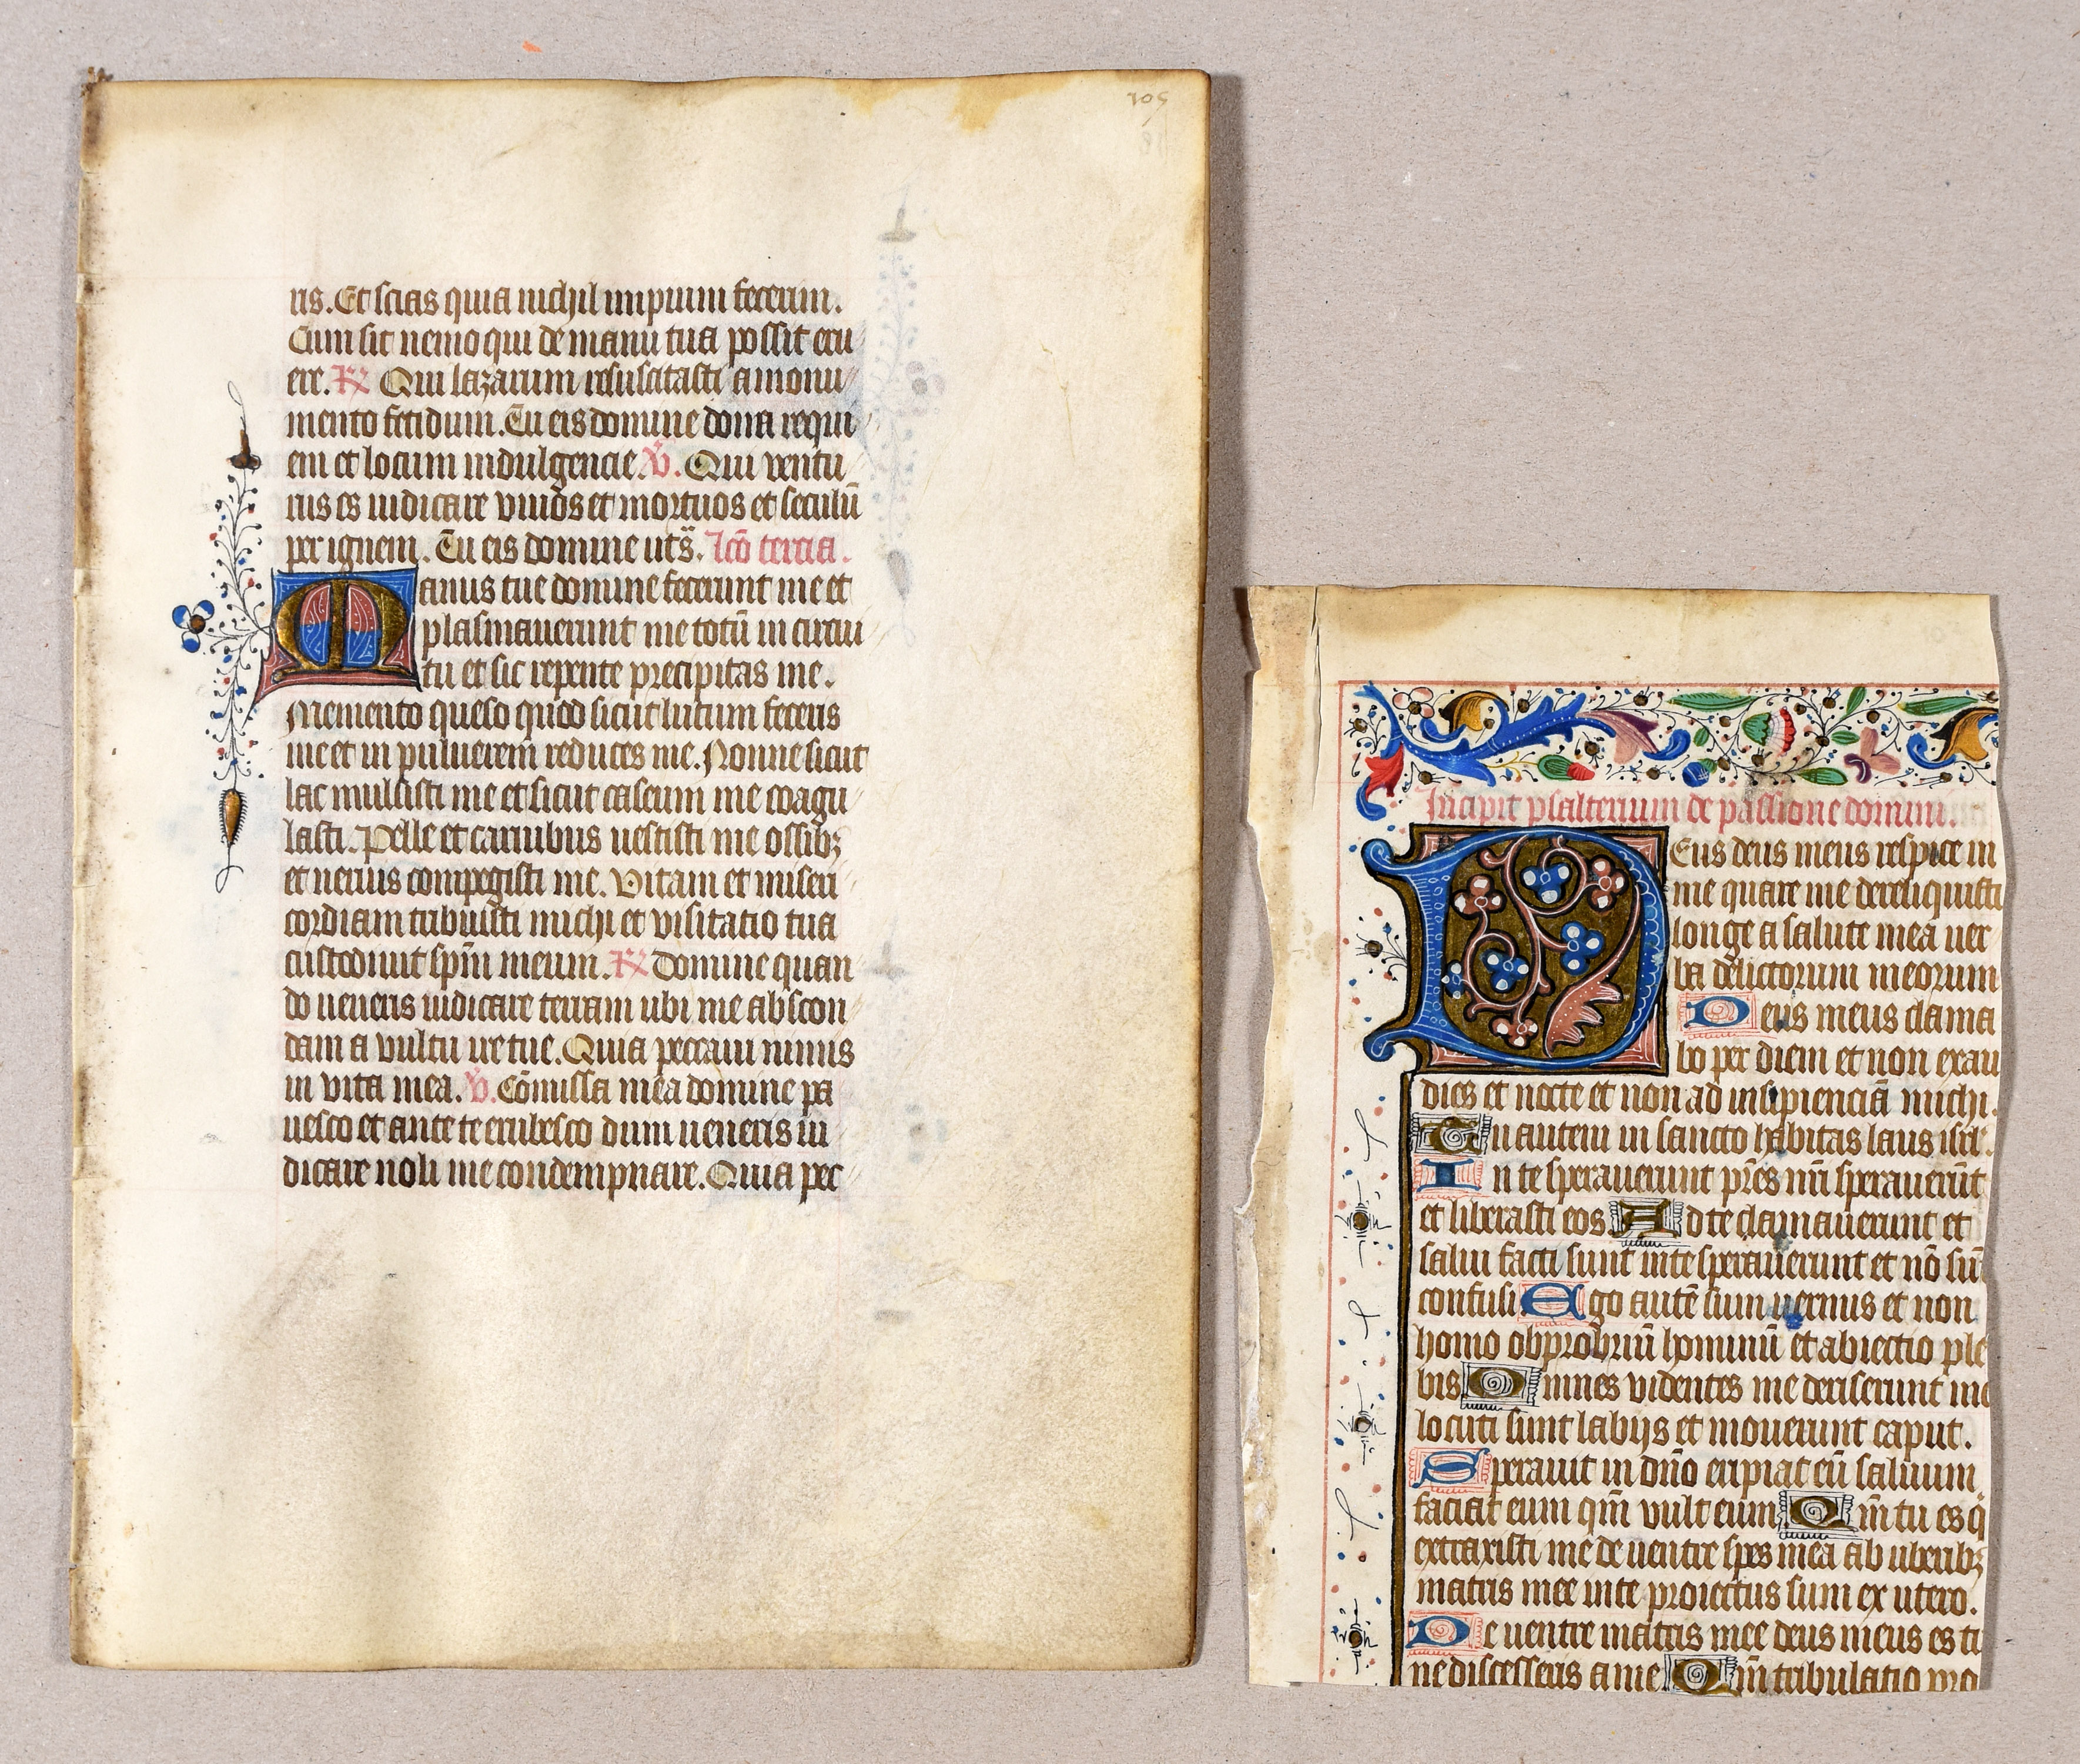 105
ris. Et scias quia nichil impium fecerim.
Cum sit nemo qui de manu tua possit eru
ere. ℟ Qui lazarum resuscitasti a monu
mento fetidum. Tu eis domine dona requi
em et locum indulgencie. ℣. Qui ventu
rus es iudicare viuos et mortuos et seculū
per ignem. Tu eis domine uts̄. lcō tercia.
Manus tue domine fecerunt me et
plasmauerunt me totū in circui
tu et sic repente precipitas me.
Memento queso quod sicut lutum feceris
me et in puluerem reduces me. Nonne sicut
lac mulsisti me et sicut caseum me coagu
lasti. Pelle et carnibus uestisti me ossibꝫ
et neruis compegisti me. Vitam et miseri
cordiam tribuisti michi et visitatio tua
custodiuit spm̄ meum. ℟ Domine quan
do ueneris iudicare terram ubi me abscon
dam a vultu ire tue. Quia peccaui nimis
in vita mea. ℣. Cōmissa mea domine pa
uesco et ante te erubesco dum ueneris iu
dicare noli me condempnare. Quia pec
Incipit psalterium de passione domini.
Deus deus meus respice in
me quare me dereliquisti
longe a salute mea uer
ba delictorum meorum
Deus meus clama
bo per diem et non exau
dies et nocte et non ad insipienciā michi.
Tu autem in sancto habitas laus isrl'.
In te sperauerunt pr̄es nr̄i sperauerūt
et liberasti eos Ad te clamauerunt et
salui facti sunt in te sperauerunt et nō sū
confusi Ego autē sum uermis et non
homo obprobriū hominū et abiectio ple
bis Omnes videntes me deriserunt me
locuti sunt labijs et mouerunt caput.
Sperauit in dn̄o eripiat eū saluum
faciat eum qm̄ vult eum Qm̄ tu es q̄
extraxisti me de uentre spes mea ab uberibꝫ
matris mee in te proiectus sum ex utero.
De uentre matris mee deus meus es tu
ne discesseris a me Qm̄ tribulatio pro